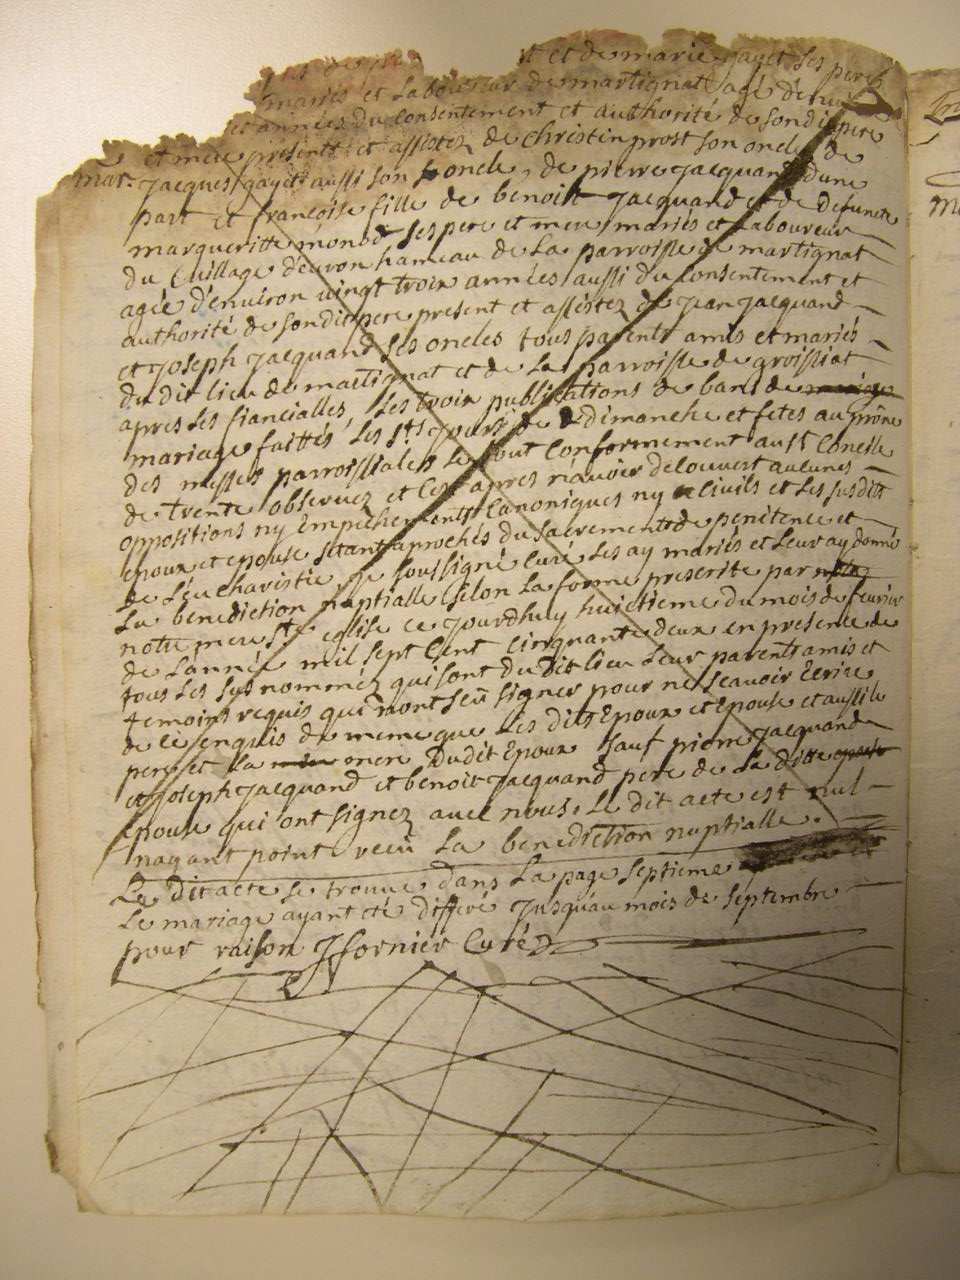 et de marie gayet ses pere
mariés et Laboureur de martignat agé de
et années du consentement et authorité de sondit pere
et mere presents et assistez de christin prost son oncle de
mar. jacques gayet aussi son oncle, de pierre jacquand d'une
part et françoise fille de benoist jacquand et de defuncte
margueritte monod ses pere et mere mariés et Laboureur
du village d'evron hameau de La parroisse de martignat
agée d'environ vingt trois années aussi du consentement et
authorité de sondit pere present et assistez de jean jacquand
et joseph jacquand ses oncles tous parents amis et mariés
du dit lieu de martignat et de La parroisse de groissiat
apres Les fiancialles, Les trois publications de bans de
mariage faittes Les sts jours de dimanche et fetes au prône
des messes parroissiales Le tout Conformement au st Concile
de trente observez et C'est apres n'avoir decouvert aucunes
oppositions ny Empechements Canoniques ny Civils et Les susdits
epoux et epouse s'etant aprochés du sacrements de penitence et
de L'eucharistie je soussigné Curé Les ay mariés et Leur ay donné
La benediction nuptialle selon La forme prescrite par
notre mere ste eglise ce jourdhuy huictieme du mois de fevrier
de L'année mil sept Cent Cinquante deux en presence de
tous Les sus nommez qui sont du dit lieu Leur parents amis et
temoins requis qui n'ont sçû signer pour ne sçavoir Ecrire
de ce enquis de meme que Les dits Epoux et Epouse et aussi le
pere et La mere Dudit Epoux sauf pierre jacquand
et joseph jacquand et benoit jacquand pere de La ditte
epouse qui ont signez avec nous. Le dit acte est nul
n'ayant point reçû La benediction nuptialle.
Le dit acte se trouve dans La page septieme
Le mariage ayant eté differé jusqu'au mois de septembre
pour raison J fornier Curé